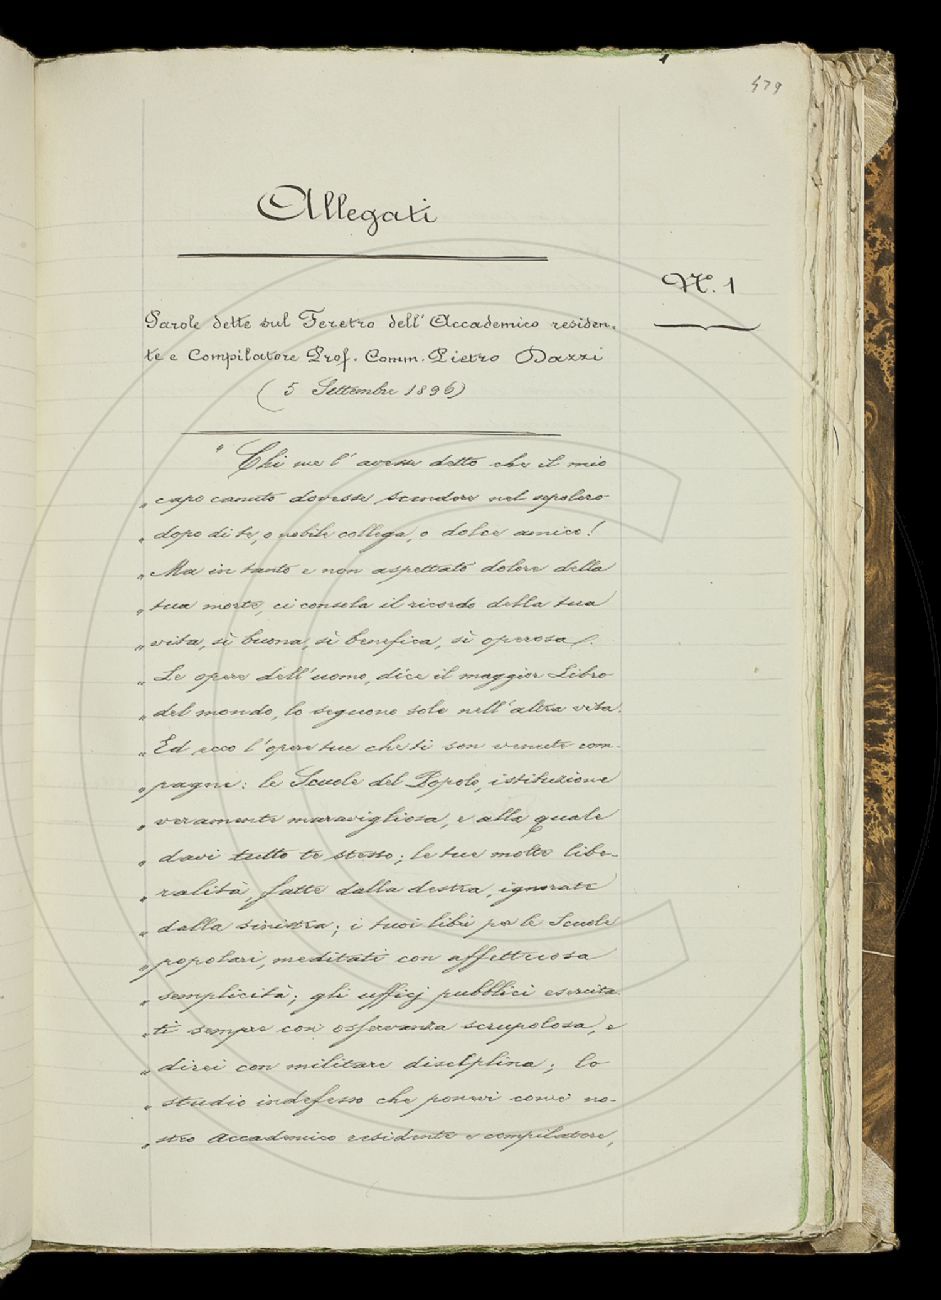 479
Allegati
N.º 1
Parole dette sul Feretro dell' Accademico residen-
te e Compilatore Prof. Comm. Pietro Dazzi
(5 Settembre 1896)
" Chi me l' avesse detto che il mio
" capo canuto dovesse scendere nel sepolcro
" dopo di te, o nobile collega, o dolce amico!
" Ma in tanto e non aspettato dolore della
" tua morte, ci consola il ricordo della tua
" vita, sì buona, sì benefica, sì operosa.
" Le opere dell' uomo, dice il maggior Libro
" del mondo, lo seguono sole nell' altra vita.
" Ed ecco l' opere tue che ti son venute com-
" pagne: le Scuole del Popolo, istituzione
" veramente maravigliosa, e alla quale
" davi tutto te stesso; le tue molte libe-
" ralità, fatte dalla destra, ignorate
" dalla sinistra; i tuoi libri per le Scuole
" popolari, meditati con affettuosa
" semplicità; gli ufficj pubblici esercita-
" ti sempre con osservanza scrupolosa, e
" direi con militare disciplina; lo
" studio indefesso che ponevi come no-
" stro Accademico residente e compilatore,